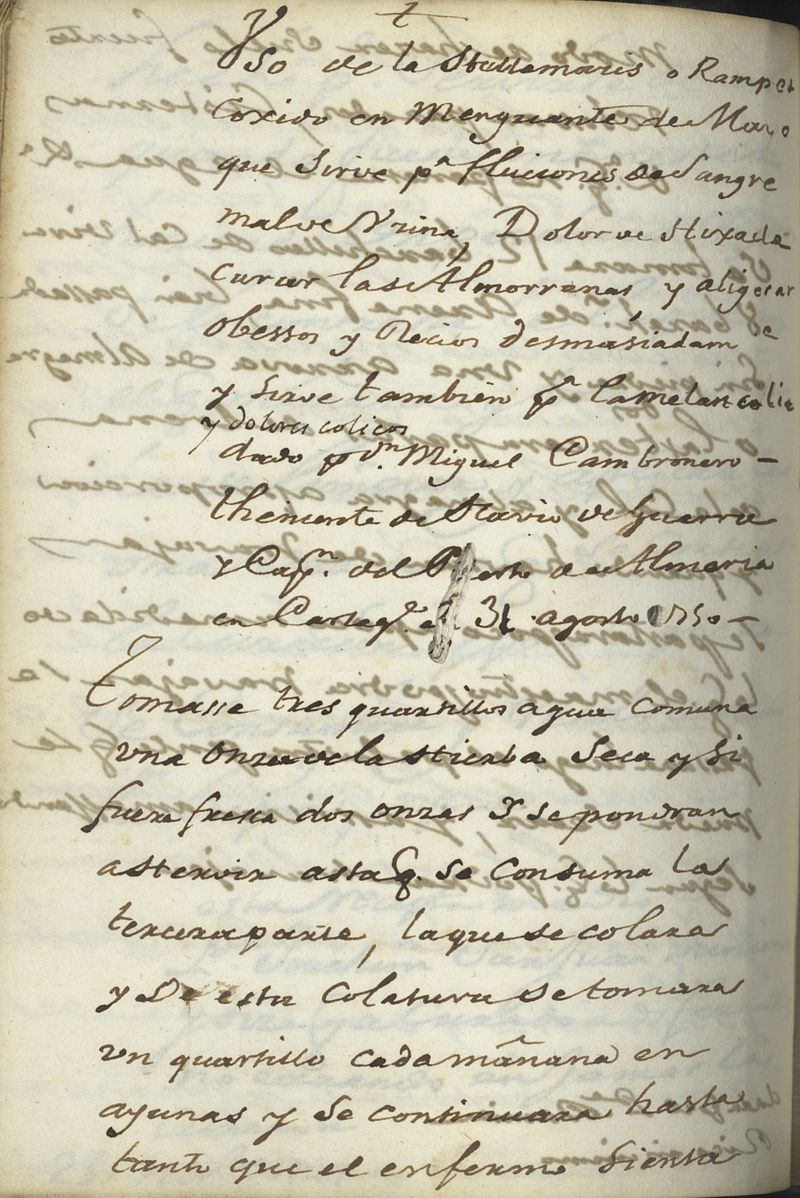 Vso de la Stellamaris o Rampet
Coxido en Menguante de Mayo
que Sirve pa. fluciones de Sangre
mal de Vrina, Dolor de Hixada
curar las Almorranas y aligerar
obessos y Recios desmasiadame
y Sirve tambien pa. la melancolia
y dolores colicos
dado pr. dn. Miguel Cambronero –
theniente de Navio de Guerra
y Capn. del Puerto de Almeria
en Cartaga. 31 agosto 1750 –
Tomasse tres quartillos agua comuna
vna onza de la Hierba Seca y Si
fuere fresca dos onzas y se pondran
a Hervir asta q. se Consuma la
tercera parte, la que se colara
y De esta Colatura se tomara
vn quartillo cada mañana en
ayunas y se continuara hasta
tanto que el enfermo Sienta